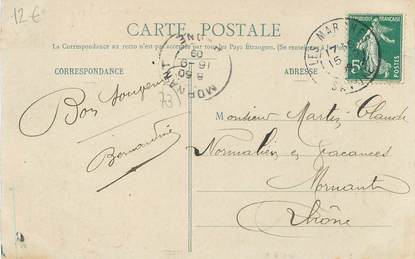 12 €
CARTE POSTALE
La Correspondance au recto n'est pas acceptée par tous les Pays Étrangers. (Se renseigner
CORRESPONDANCE
ADRESSE
MORNANT
8 50
15 -9
09
5c
POSTES
73
Bon souvenir
Bernardine
Monsieur Martin Claude
Normalien en vacances
Mornant
Rhône